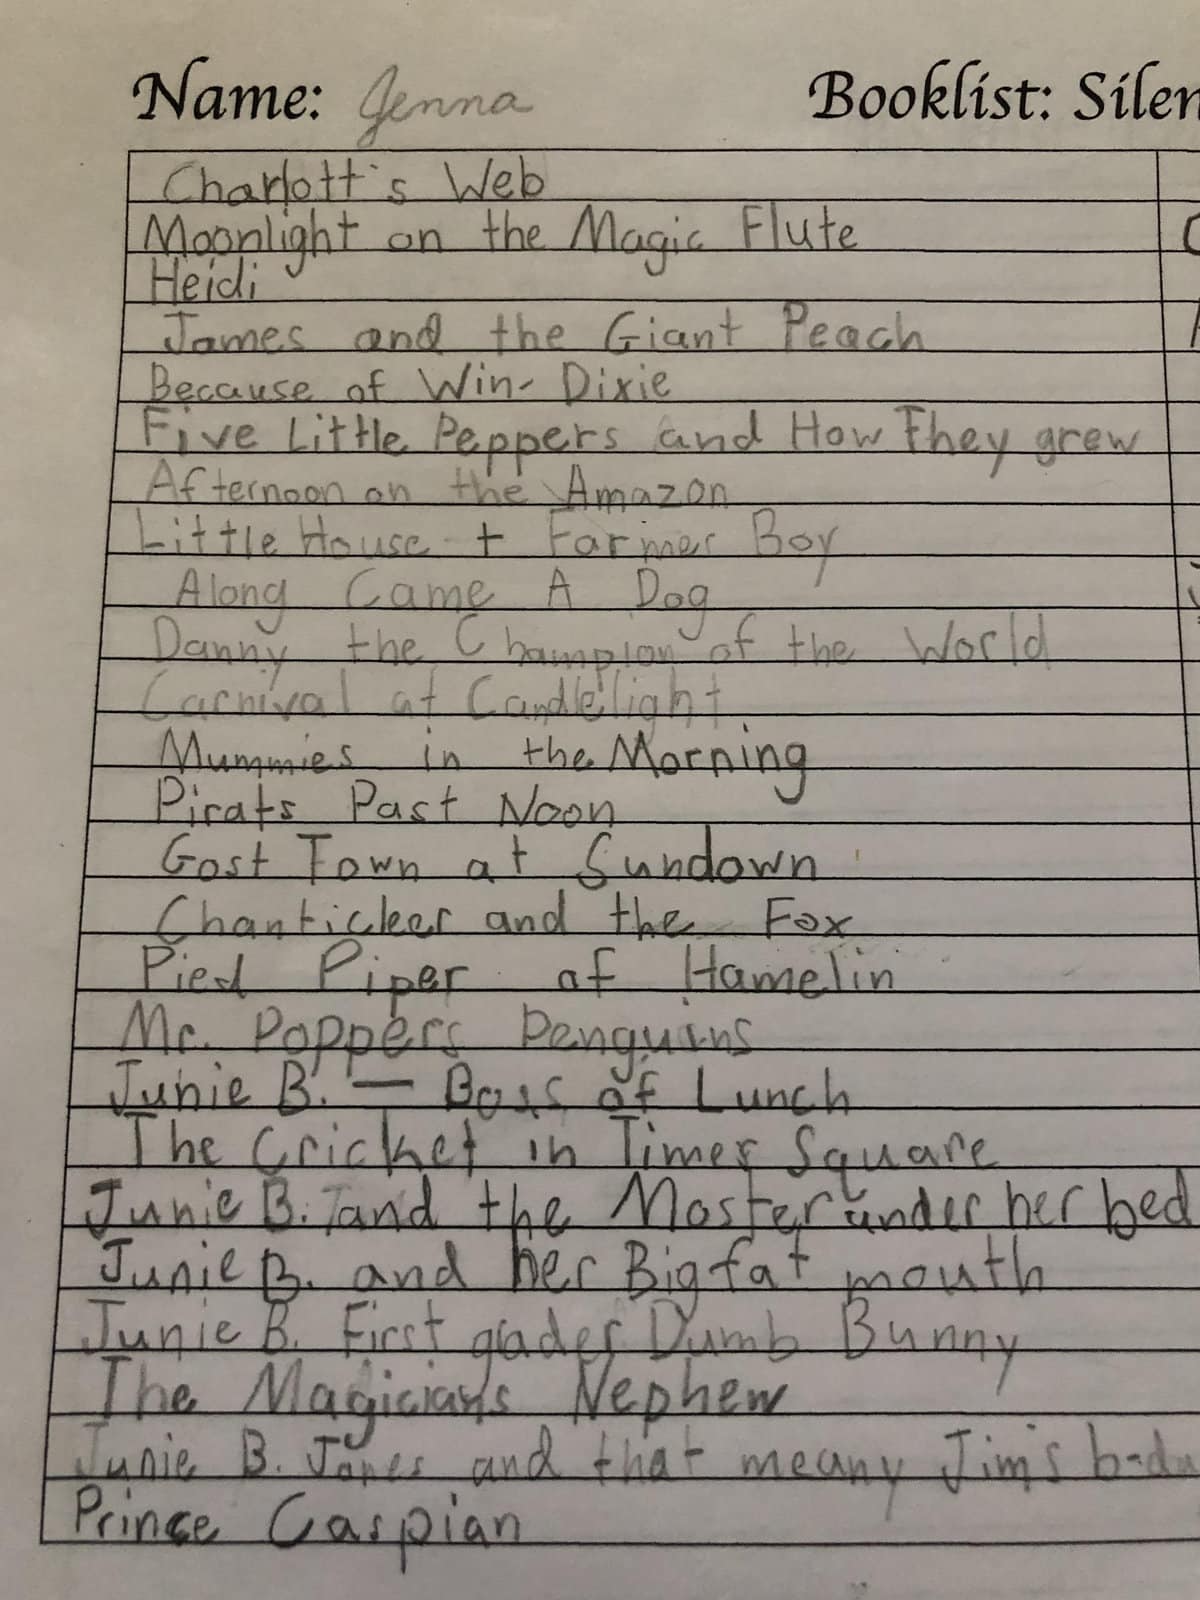 Name: Jenna Booklist: Silen
Charlott's Web
Moonlight on the Magic Flute
Heidi
James and the Giant Peach
Because of Win-Dixie
Five Little Peppers and How They grew
Afternoon on the Amazon
Little House + Farmer Boy
Along Came A Dog
Danny the Champion of the World
Carnival at Candlelight
Mummies in the Morning
Pirats Past Noon
Gost Town at Sundown
Chanticleer and the Fox
Pied Piper of Hamelin
Mr. Poppers Penguins
Junie B. — Boss of Lunch
The Cricket in Times Square
Junie B. and the Moster under her bed
Junie B. and her Big fat mouth
Junie B. First grader Dumb Bunny
The Magician's Nephew
Junie B. Jones and that meany Jim's b-da
Prince Caspian